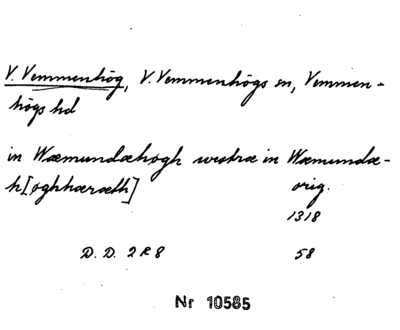 V. Vemmenhög, V. Vemmenhögs sn, Vemmen-
högs hd
in Wæmundæhøgh westræ in Wæmundæ-
h[øghhæræth]
orig.
1318
D. D. 2 R 8 58
Nr 10585